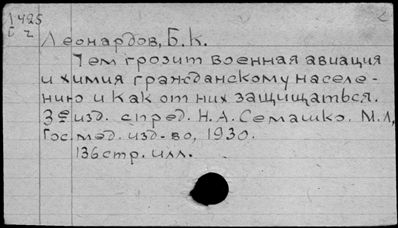 1425
Г 2
Леонардов, Б. К.
Чем грозит военная авиация
и химия гражданскому населе-
нию и как от них защищаться.
3ᵉ изд. с пред. Н. А. Семашко. М.Л,
Гос. мед. изд-во, 1930.
136 стр. илл.